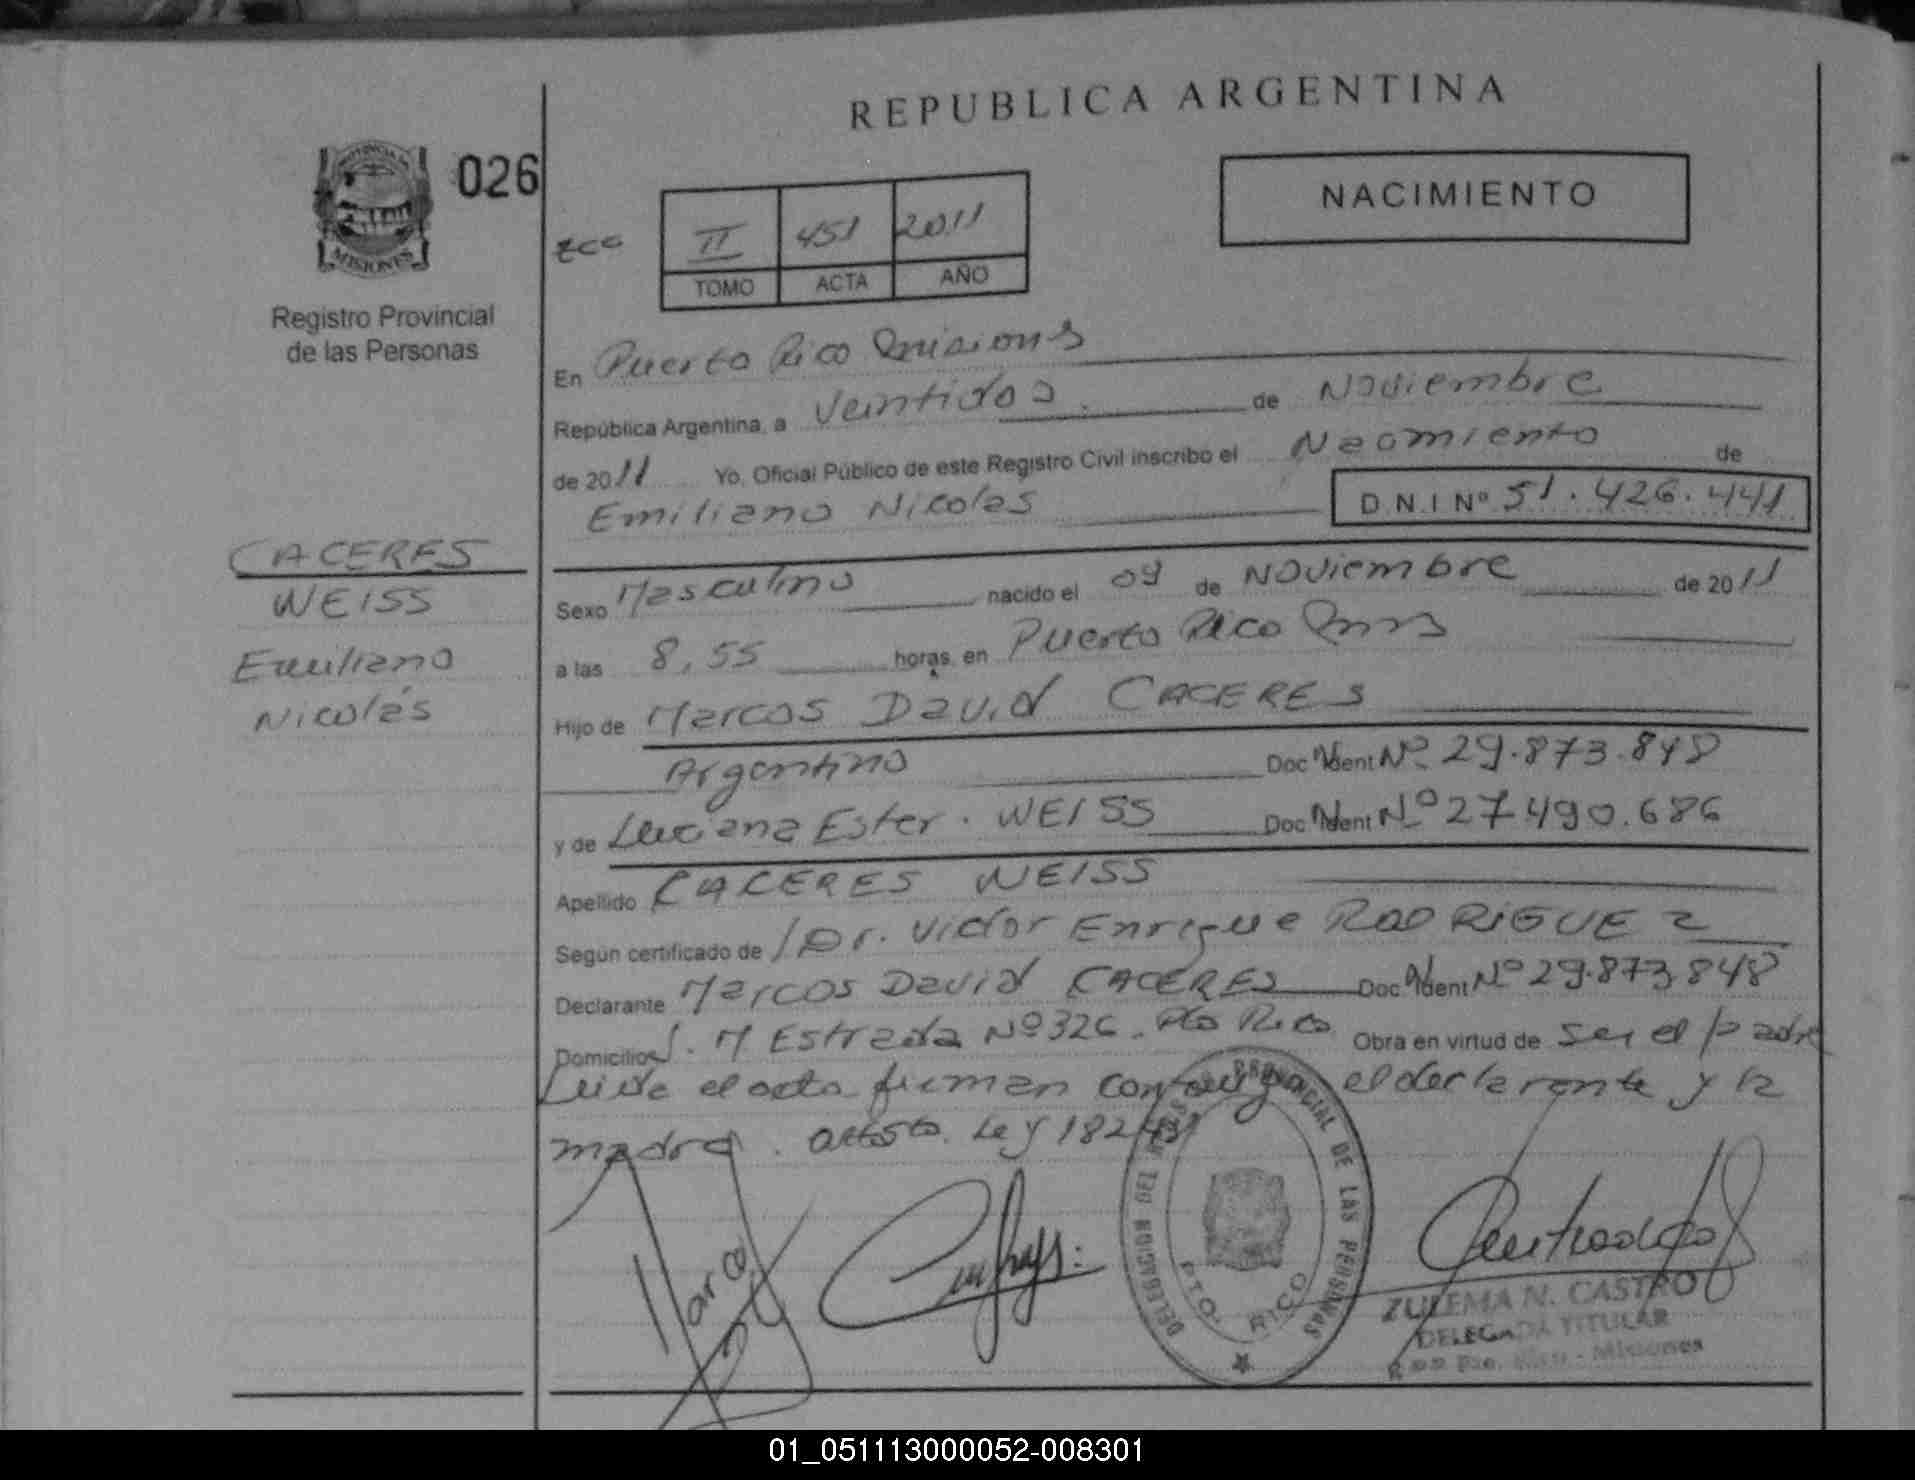 REPUBLICA ARGENTINA
PROVINCIA DE
MISIONES
026
NACIMIENTO
II 451 2011
TOMO ACTA AÑO
Registro Provincial
de las Personas
En Puerto Rico Misiones
República Argentina, a Veintidos de Noviembre
de 2011 Yo, Oficial Público de este Registro Civil inscribo el Nacimiento de
Emiliano Nicolas D.N.I Nº 51.426.441
CACERES
WEISS
Emiliano
Nicolás
Sexo Masculino nacido el 09 de Noviembre de 2011
a las 8,55 horas, en Puerto Rico Mnes
Hijo de Marcos David CACERES
Argentino Doc Ident Nº 29.873.848
y de Luciana Ester. WEISS Doc Ident Nº 27.490.686
Apellido CACERES WEISS
Según certificado de Dr. Victor Enrique RODRIGUEZ
Declarante Marcos David CACERES Doc Ident Nº 29.873.848
Domicilio J. M Estrada Nº 326. Pto Rico Obra en virtud de ser el padre
Leída el acta firman conmigo el declarante y la
madre. Ley 18248
DELEGACION DEL REGISTRO PROVINCIAL DE LAS PERSONAS
PTO. RICO
ZULEMA N. CASTRO
DELEGADA TITULAR
Pto. Rico - Misiones
01_051113000052-008301